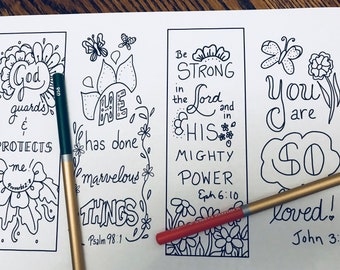 God
guards
&
PROTECTS
me!
HE
has done
marvelous
THINGS
Psalm 98:1
Be
STRONG
in the Lord
and in
HIS
MIGHTY
POWER
Eph 6:10
You
are
SO
loved!
John 3: